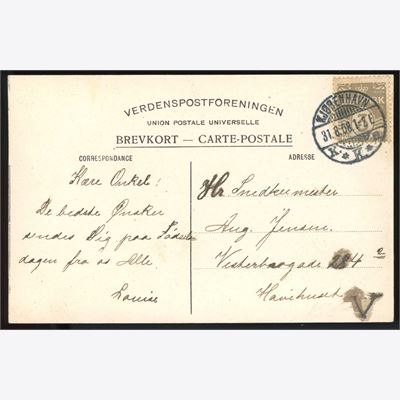 VERDENSPOSTFORENINGEN
UNION POSTALE UNIVERSELLE
BREVKORT — CARTE-POSTALE
KJØBENHAVN
31.8.08. 1-3 E
K * K * B
CORRESPONDANCE
Kære Onkel!
De bedste Ønsker
sendes Dig paa Fødsels
dagen fra os Alle.
Louise
ADRESSE
Hr. Snedkermester
Aug. Jensen.
Vesterbrogade 184
Havehuset
V